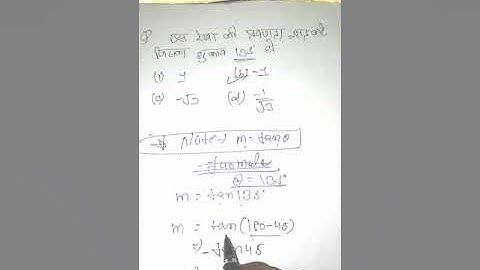 Q उस रेखा की प्रवणता ज्ञात करें
जिसका झुकाव 135° हो
(1) 1 (b) -1
(c) -√3 (d) -1/√3
Note→ m = tanθ
formula
θ = 135°
m = tan135°
m = tan(180-45)
-tan45